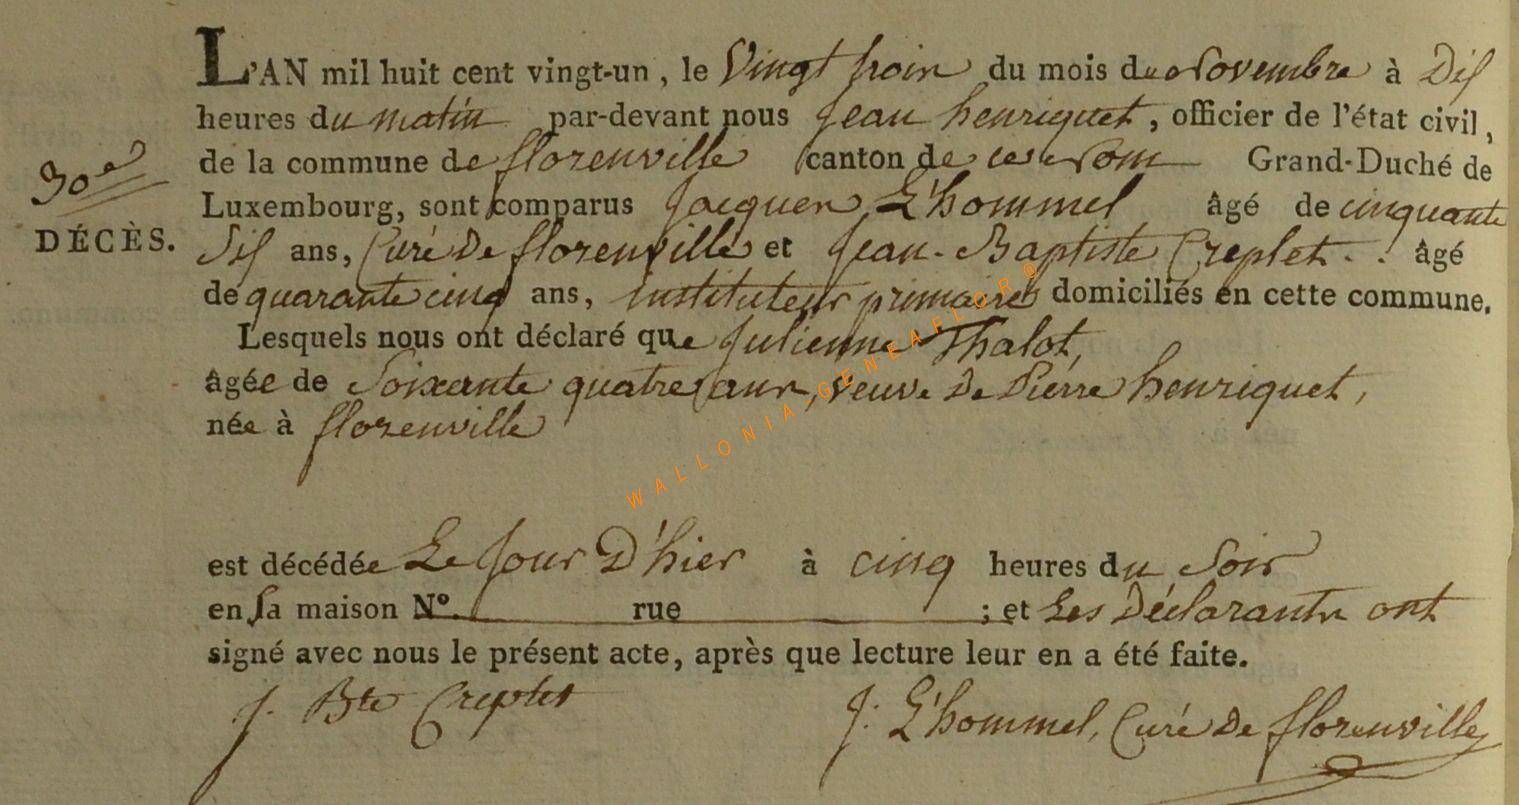 L'AN mil huit cent vingt-un, le vingt trois du mois de Novembre à Dix
heures du matin par-devant nous Jean henriquet, officier de l'état civil,
de la commune de florenville canton de ce Nom Grand-Duché de
30e
Luxembourg, sont comparus Jacques L'hommel âgé de cinquante
DÉCÈS.
Six ans, Curé De florenville et Jean-Baptiste Creplet .. âgé
de quarante cinq ans, instituteur primaire domiciliés en cette commune.
Lesquels nous ont déclaré que Julienne Thalot,
âgée de Soixante quatre ans, veuve De Pierre henriquet,
née à florenville
WALLONIA-GENEAFLOR©
est décédée Le Jour D'hier à cinq heures du Soir
en Sa maison N° rue ; et Les Déclarants ont
signé avec nous le présent acte, après que lecture leur en a été faite.
J. Bte Creplet
J: L'hommel, Curé De florenville